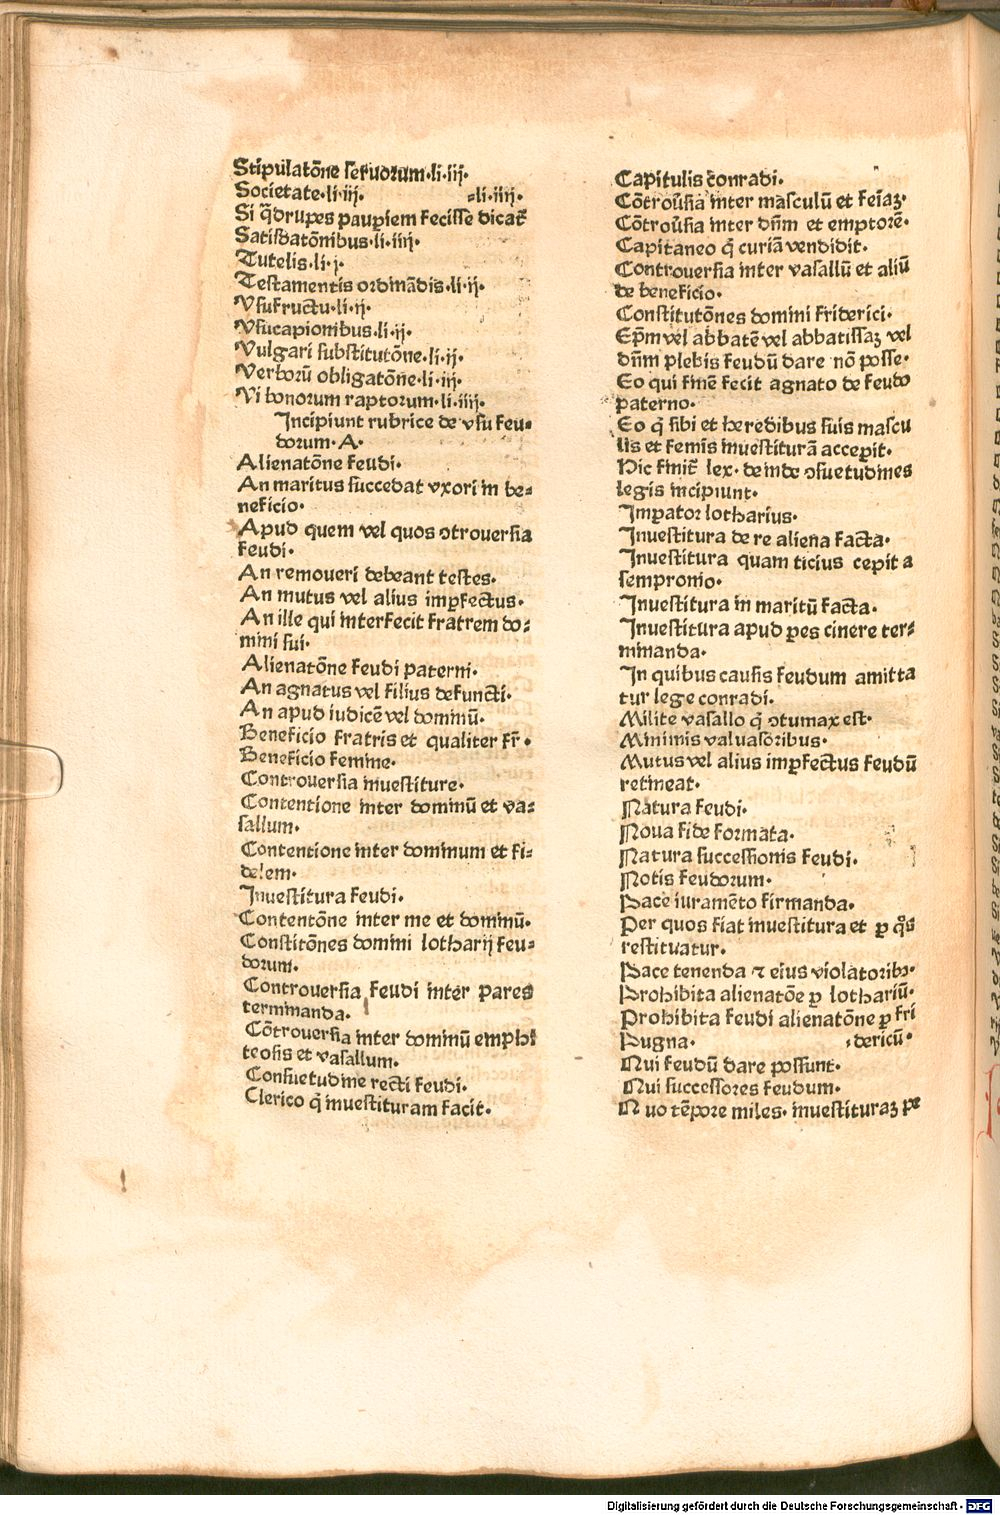 Stipulatõne seruorum·li·iij·
Societate·li·iij· ⸗li·iiij·
Si q̃drupes paup̱iem fecisse dicat᷑
Satisdatõnibus·li·iiij·
Tutelis·li·j·
Testamentis ordinãdis·li·ij·
Vsufructu·li·ij·
Vsucapionibus·li·ij·
Vulgari substitutõne·li·ij·
Verborũ obligatõne·li·iij·
Vi bonorum raptorum·li·iiij·
Incipiunt rubrice de vsu feu⸗
dorum·A·
Alienatõne feudi·
An maritus succedat vxori in be⸗
neficio·
Apud quem vel quos ↄtrouersia
feudi·
An remoueri debeant testes·
An mutus vel alius imꝑfectus·
An ille qui interfecit fratrem do⸗
mini sui·
Alienatõne feudi paterni·
An agnatus vel filius defuncti·
An apud iudicẽ vel dominũ·
Beneficio fratris et qualiter fr̃·
Beneficio femine·
Controuersia inuestiture·
Contentione inter dominũ et va⸗
sallum·
Contentione inter dominum et fi⸗
delem·
Inuestitura feudi·
Contentõne inter me et dominũ·
Constitõnes domini lotharij feu⸗
dorum·
Controuersia feudi inter pares
terminanda·
Cõtrouersia inter dominũ emphi
teosis et vasallum·
Consuetudine recti feudi·
Clerico q̃ inuestituram facit·
Capitulis conradi·
Cõtroũsia inter masculũ et feĩaꝫ·
Cõtroũsia inter dñm et emptorẽ·
Capitaneo q̃ curiã vendidit·
Controuersia inter vasallũ et aliũ
de beneficio·
Constitutõnes domini friderici·
Ep̃m vel abbatẽ vel abbatissaꝫ vel
dñm plebis feudũ dare nõ posse·
Eo qui finẽ fecit agnato de feudo
paterno·
Eo q̃ sibi et heredibus suis mascu
lis et feminis inuestiturã accepit·
Hic finit᷑ lex· deinde ↄsuetudines
legis incipiunt·
Imꝑator lotharius·
Inuestitura de re aliena facta·
Inuestitura quam ticius cepit a
sempronio·
Inuestitura in maritũ facta·
Inuestitura apud ꝑes cinere ter⸗
minanda·
In quibus causis feudum amitta
tur lege conradi·
Milite vasallo q̃ ↄtumax est·
Minimis valuasoribus·
Mutus vel alius imꝑfectus feudũ
retineat·
Natura feudi·
Noua fide formata·
Natura successionis feudi·
Notis feudorum·
Pace iuramẽto firmanda·
Per quos fiat inuestitura et ꝑ q̊s
restituatur·
Pace tenenda ⁊ eius violatoribꝫ·
Prohibita alienatõe ꝑ lothariũ·
Prohibita feudi alienatõne ꝑ fri
Pugna· ⸗dericũ·
Qui feudũ dare possunt·
Qui successores feudum·
Quo tẽpore miles· inuestituraꝫ pe
Digitalisierung gefördert durch die Deutsche Forschungsgemeinschaft - DFG